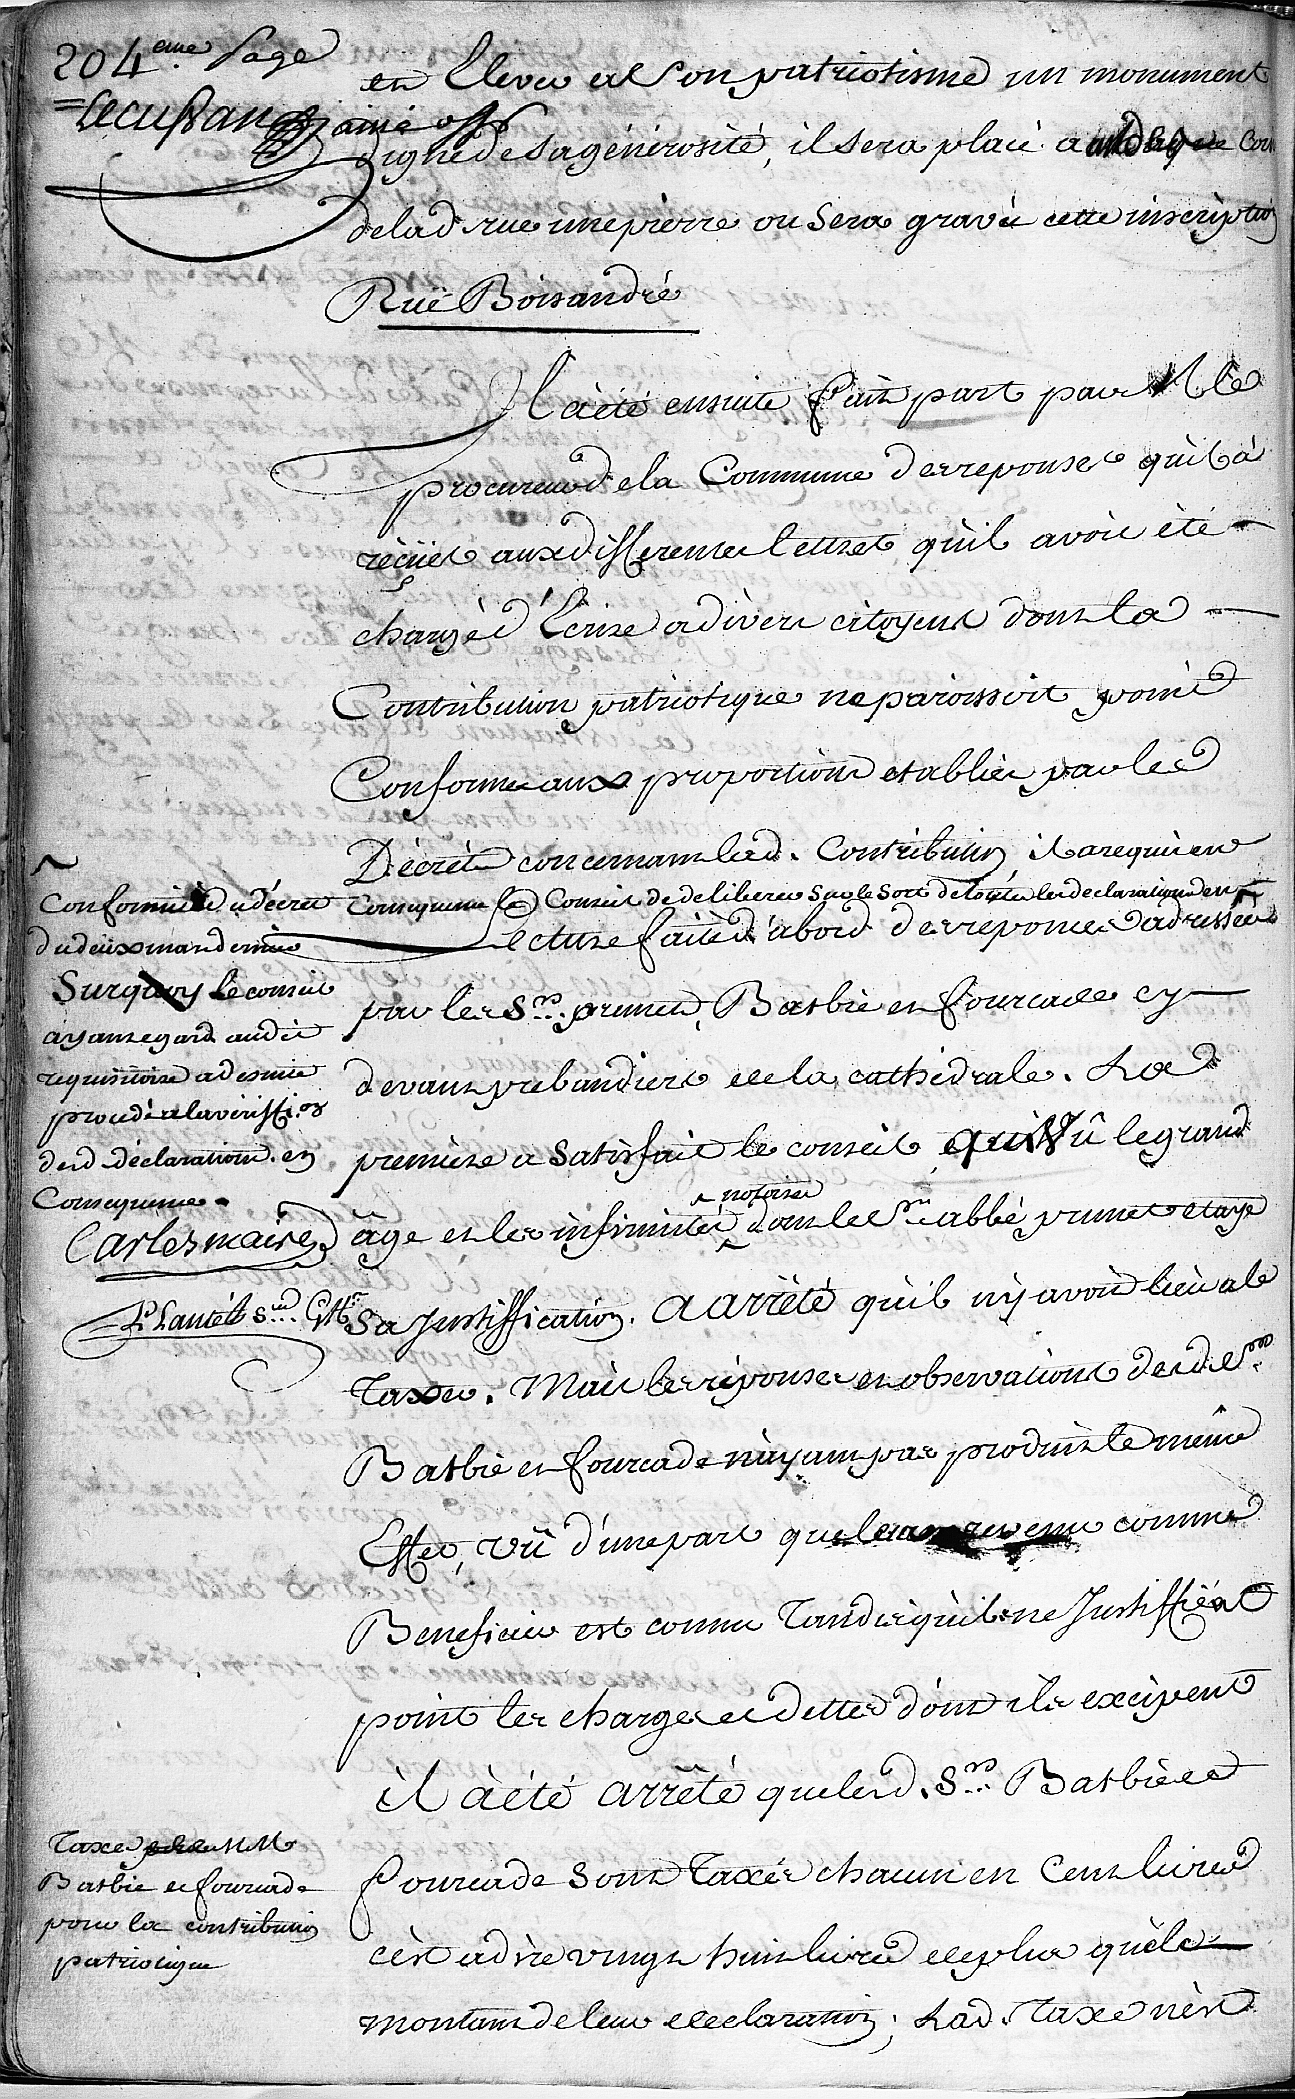 204eme. Page
en Elever a Son patriotisme un monument
Lecussan ainé off
digne de sa générosité, il sera placé a
de lad. rue une pierre ou Sera gravée cette inscription
Ruë Boisandré
Il à été ensuite fait part par M. le
procureur de la Commune des reponses qu'il à
réçües aux differentes lettres qu'il avoit été
chargé d'Ecrire a divers citoyens dont la
Contribution patriotique ne paroissoit point
Conforme aux proportions etablies par les
Décrèts concernant lad. Contribution il a requis en
Consequence le Conseil de deliberer Sur le Sort de toutes les declarations en
Conformité du décret
du deux mars dernier
Surquoy le conseil
ayant egard audit
requisitoire a de suite
procedé a la veriffion
desd. déclarations. en
Consequence.
Carles maire
P. Lanes Sre Gffr
Lecture faite d'abord des reponses adressées
par les Srs. prunet, Barbie et fourcade cy
devant prebandiers de la cathédrale. La
premiere a Satisfait le conseil qui Vû le grand
âge et les infirmités notoires dont le Sr. abbé prunet etaye
Sa Justiffication. a arrêté qu'il n'y avoit lieu a le
Taxer. Mais les réponses et observations desd. Srs.
Barbie et fourcade n'ayant pas produit le même
Effet, vû d'une part que leur revenu comme
Beneficier est connu Tandis qu'ils ne Justiffient
point les charges et dettes dont ils excipent
il à été arrêté que lesd. Srs. Barbie et
Taxe de MM
Barbie et fourcade
pour la contribution
patriotique
fourcade Sont Taxés chacun en Cent livres
c'est a dire vingt huit livres de plus que le
montant de leur declaration; Lad. Taxe n'est